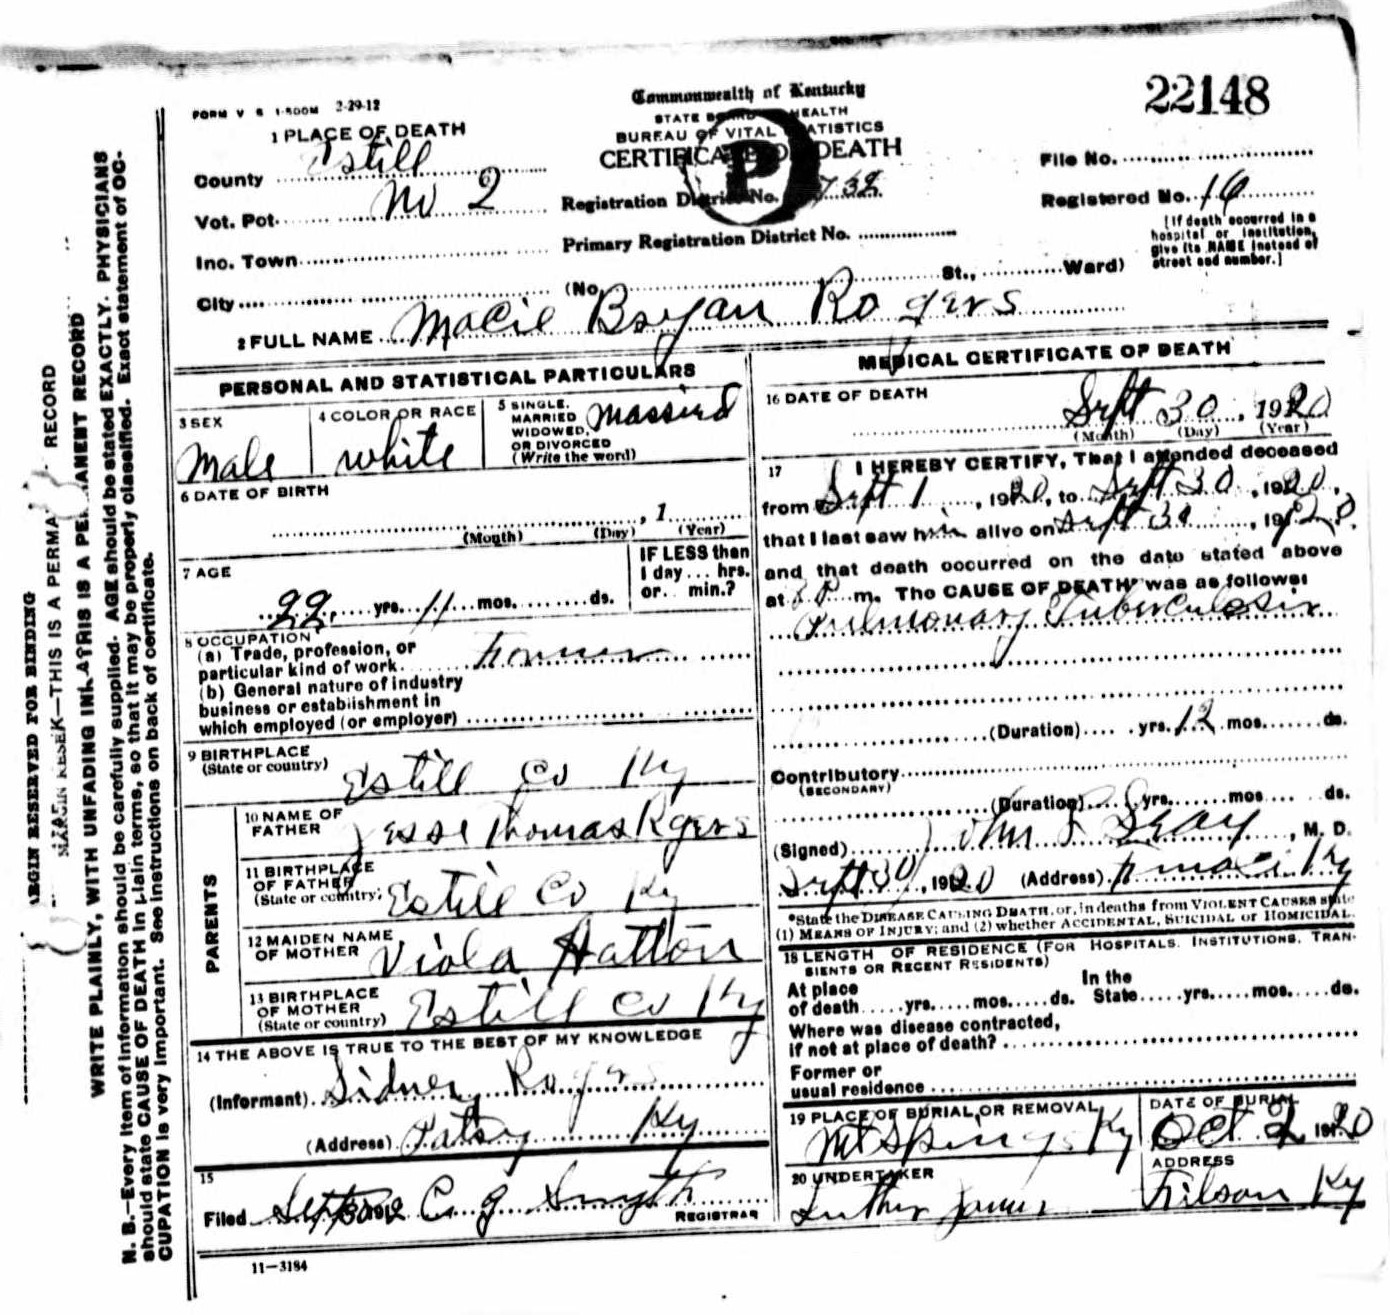 FORM V S 1-500M 2-29-12
Commonwealth of Kentucky
STATE BOARD HEALTH
BUREAU OF VITAL STATISTICS
CERTIFICATE OF DEATH
22148
1 PLACE OF DEATH
County Estill
Vot. Pct. No 2
Inc. Town
City
P
Registration District No. 732
Primary Registration District No.
(No. St., Ward)
File No.
Registered No. 16
[If death occurred in a
hospital or institution,
give its NAME instead of
street and number.]
2 FULL NAME Macie Bryan Rogers
PERSONAL AND STATISTICAL PARTICULARS
3 SEX
Male
4 COLOR OR RACE
white
5 SINGLE,
MARRIED
WIDOWED,
OR DIVORCED
(Write the word)
Married
6 DATE OF BIRTH
, 1
(Month) (Day) (Year)
7 AGE
22 yrs. 11 mos. ds.
IF LESS than
1 day... hrs.
or... min.?
8 OCCUPATION
(a) Trade, profession, or
particular kind of work Farmer
(b) General nature of industry
business or establishment in
which employed (or employer)
9 BIRTHPLACE
(State or country) Estill Co Ky
PARENTS
10 NAME OF
FATHER Jesse Thomas Rgers
11 BIRTHPLACE
OF FATHER
(State or country) Estill Co Ky
12 MAIDEN NAME
OF MOTHER Viola Hatton
13 BIRTHPLACE
OF MOTHER
(State or country) Estill Co Ky
14 THE ABOVE IS TRUE TO THE BEST OF MY KNOWLEDGE
(Informant) Sidney Rogers
(Address) Patsy Ky
15
Filed C. G. Smyth
REGISTRAR
11-3184
MEDICAL CERTIFICATE OF DEATH
16 DATE OF DEATH
Sept 30, 1920
(Month) (Day) (Year)
17 I HEREBY CERTIFY, That I attended deceased
from Sept 1, 1920, to Sept 30, 1920,
that I last saw him alive on Sept 30, 1920,
and that death occurred on the date stated above
at 8 P m. The CAUSE OF DEATH* was as follows:
Pulmonary Tuberculosis
(Duration) yrs. 12 mos. ds.
Contributory
(SECONDARY)
(Duration) yrs. mos. ds.
(Signed) John, M. D.
Sept 30, 1920 (Address) Ky
*State the DISEASE CAUSING DEATH, or, in deaths from VIOLENT CAUSES state
(1) MEANS OF INJURY; and (2) whether ACCIDENTAL, SUICIDAL or HOMICIDAL.
18 LENGTH OF RESIDENCE (FOR HOSPITALS, INSTITUTIONS, TRAN-
SIENTS OR RECENT RESIDENTS)
At place In the
of death yrs. mos. ds. State yrs. mos. ds.
Where was disease contracted,
if not at place of death?
Former or
usual residence
19 PLACE OF BURIAL OR REMOVAL
Mt Springs Ky
DATE OF BURIAL
Oct 2 1920
20 UNDERTAKER
Luther
ADDRESS
Filson Ky
MARGIN RESERVED FOR BINDING
MARGIN RESER —THIS IS A PERMA RECORD
WRITE PLAINLY, WITH UNFADING INK—THIS IS A PERMANENT RECORD
N. B.—Every item of information should be carefully supplied. AGE should be stated EXACTLY. PHYSICIANS
should state CAUSE OF DEATH in plain terms, so that it may be properly classified. Exact statement of OC-
CUPATION is very important. See instructions on back of certificate.